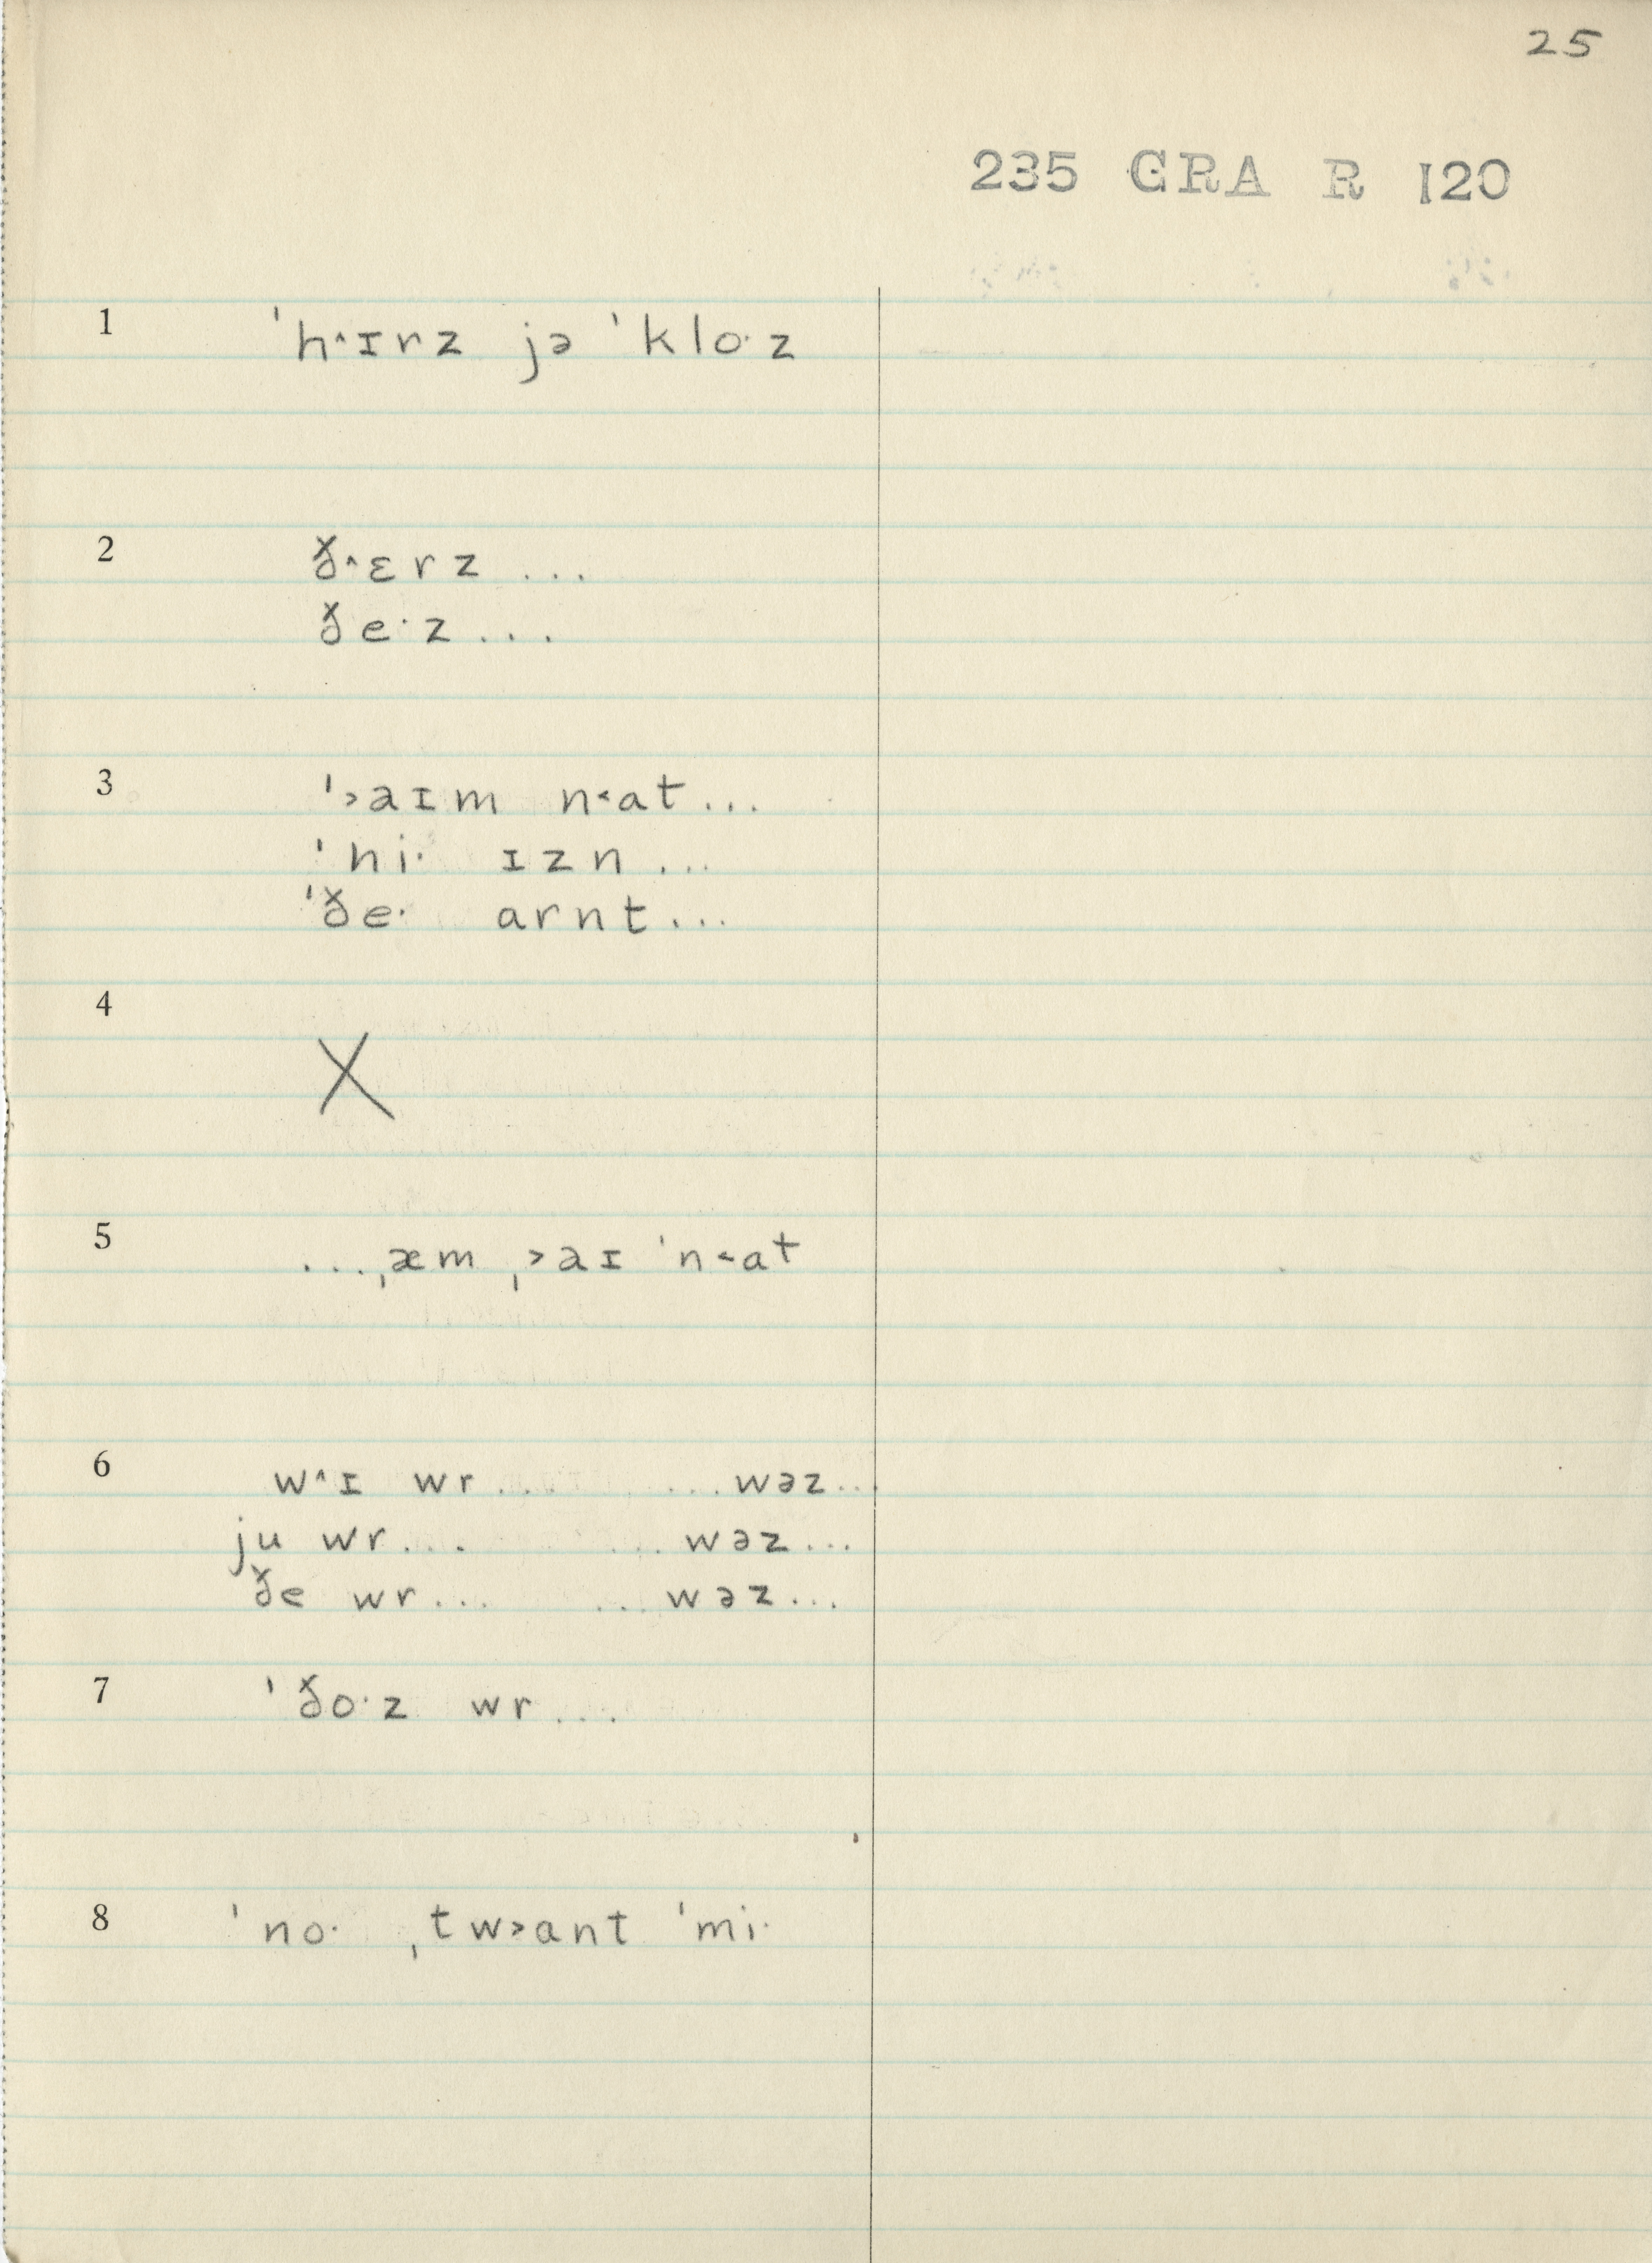 25
235 GRA R 120
1 ˈh˄ɪrz jə ˈkloˑz
2 ð˄ɛrz ...
ðeˑz ...
3 ˈ˃aɪm n˂ɑt ...
ˈhiˑ ɪzn ...
ˈðeˑ ɑrnt ...
4 X
5 ... ˌæm ˌ˃aɪ ˈn˂ɑt
6 w˄ɪ wr ... ... wəz ...
ju wr ... ... wəz ...
ðe wr ... ... wəz ...
7 ˈðoˑz wr ...
8 ˈnoˑ ˌtw˃ɑnt ˈmiˑ